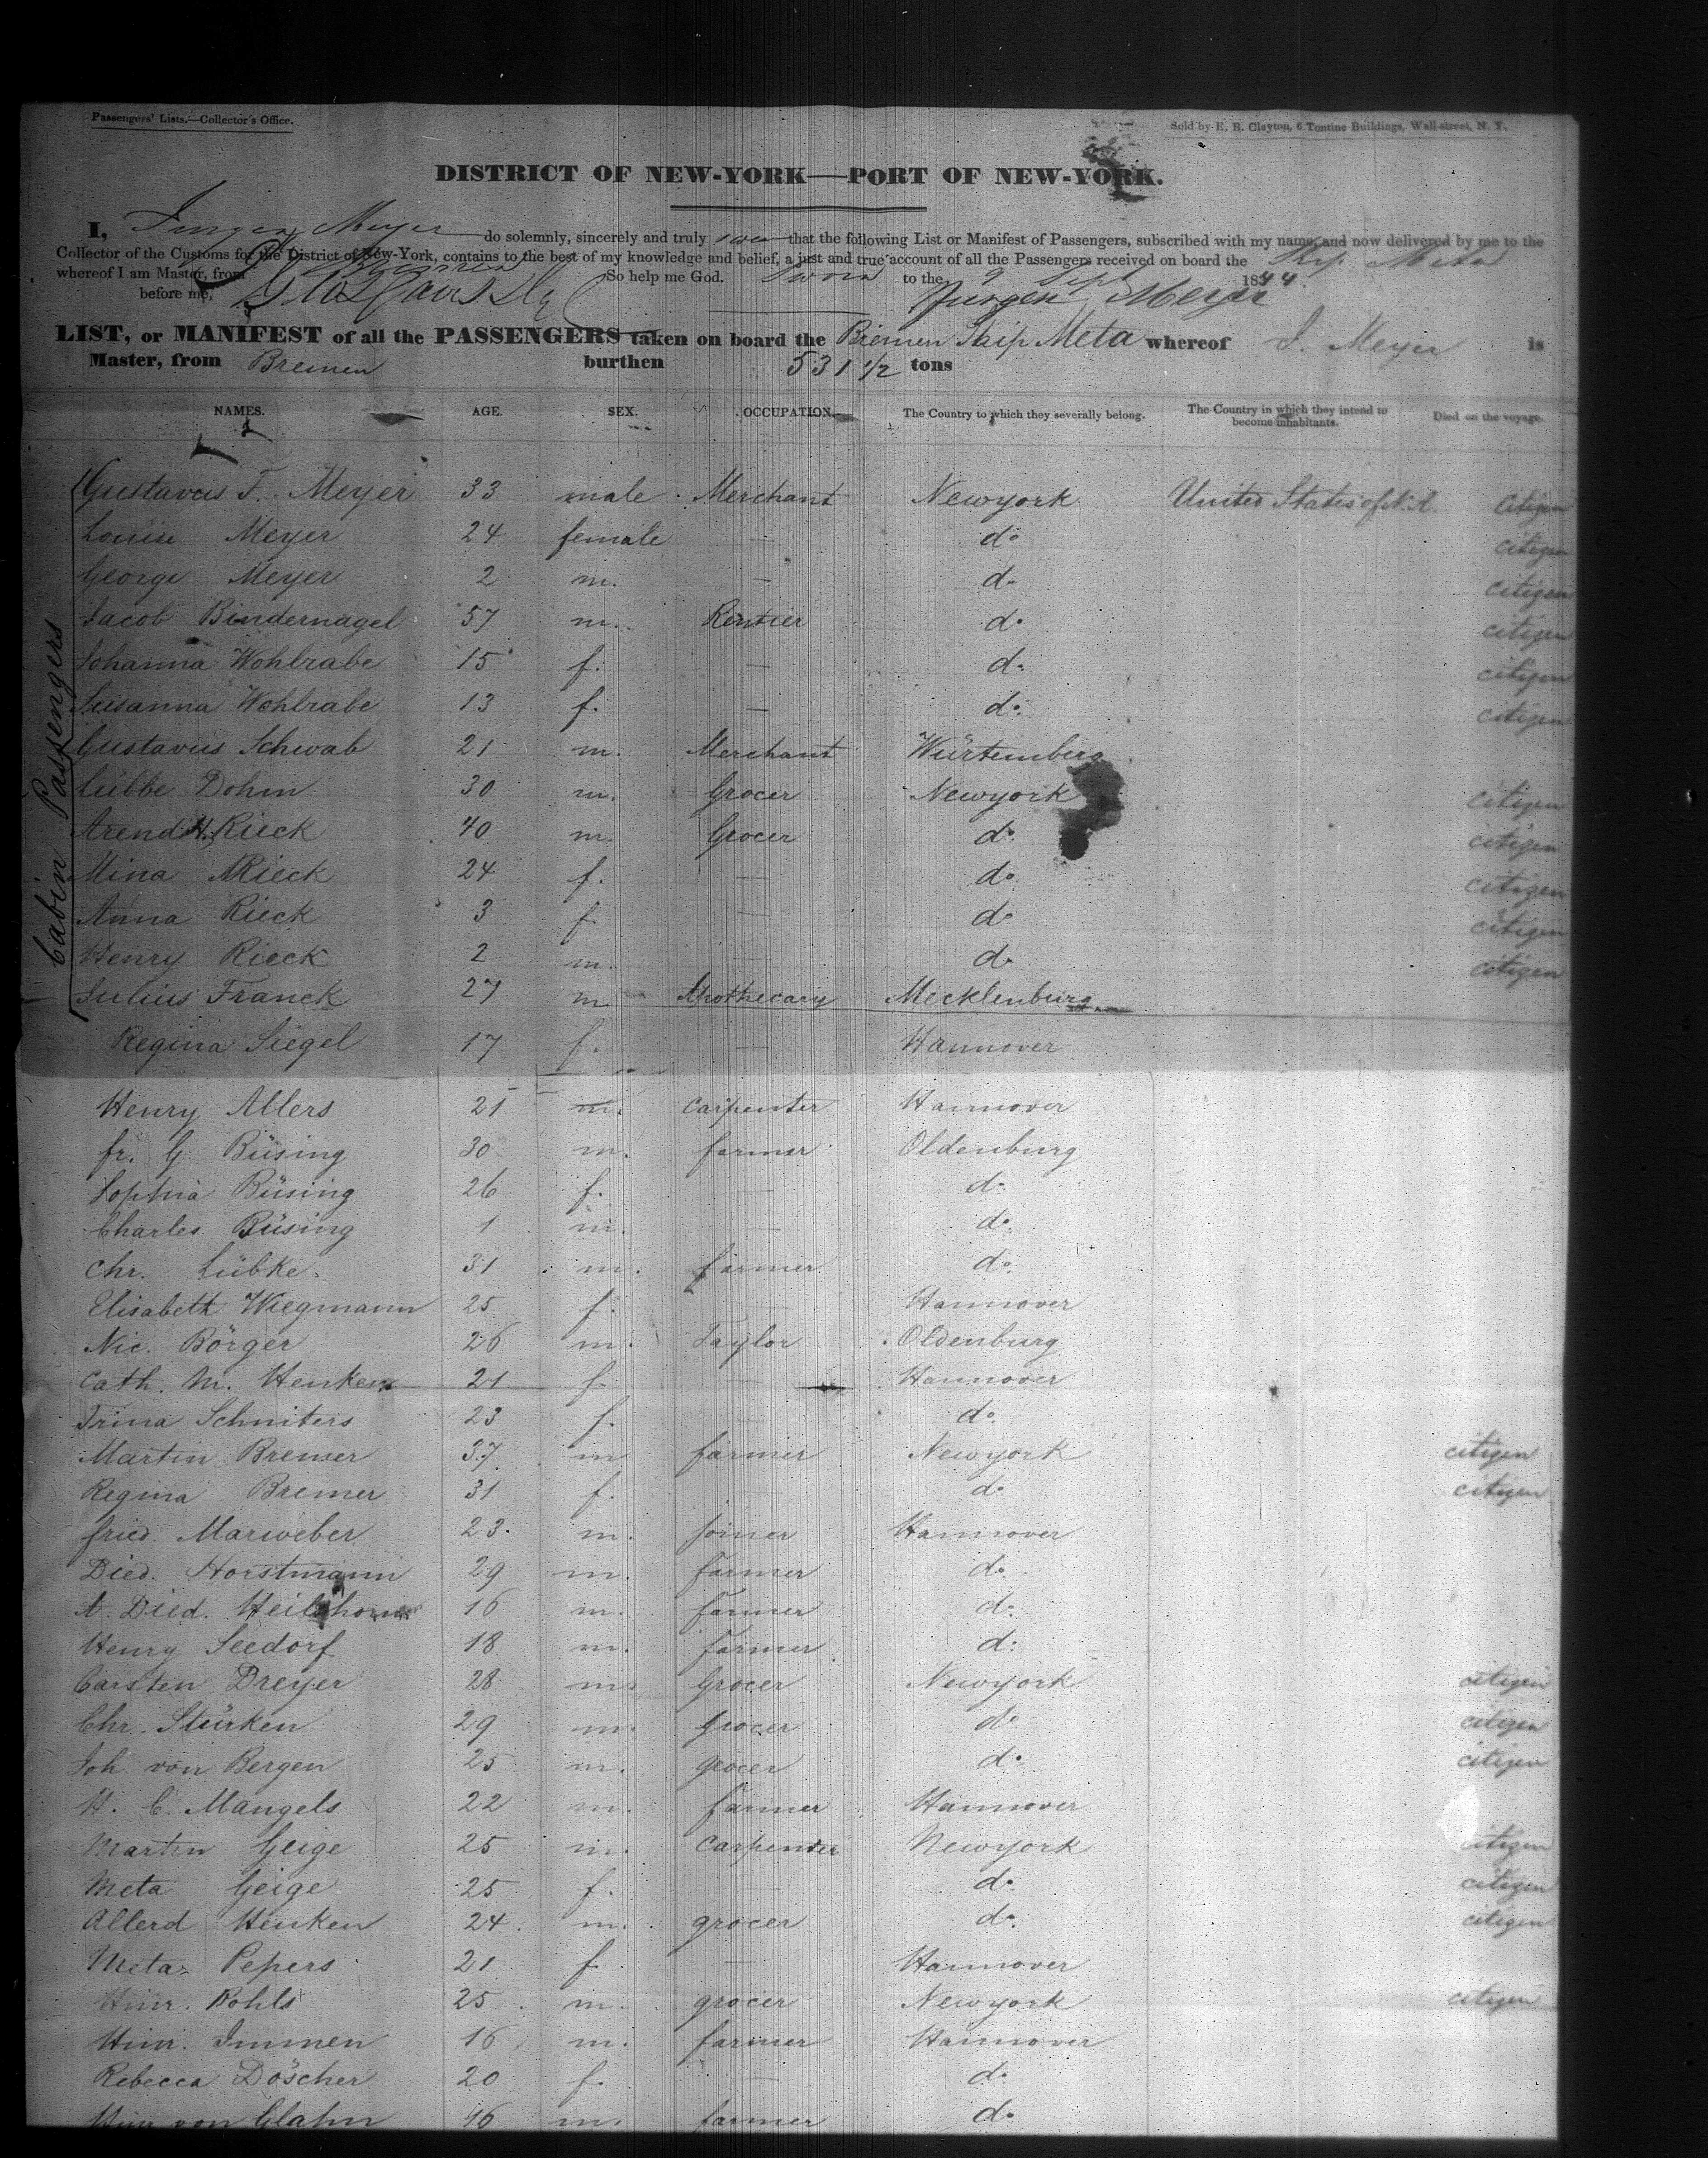 Passengers' Lists.—Collector's Office.
Sold by E. B. Clayton, 6 Tontine Buildings, Wall-street, N. Y.
DISTRICT OF NEW-YORK—PORT OF NEW-YORK.
I, Jurgen Meyer do solemnly, sincerely and truly that the following List or Manifest of Passengers, subscribed with my name, and now delivered by me to the
Collector of the Customs for the District of New-York, contains to the best of my knowledge and belief, a just and true account of all the Passengers received on board the Ship Meta
whereof I am Master, from Bremen So help me God. Sworn to the 9 Sept 1844.
before me, Jurgen Meyer
LIST, or MANIFEST of all the PASSENGERS taken on board the Bremen Ship Meta whereof J. Meyer is
Master, from Bremen burthen 531 1/2 tons
NAMES. AGE. SEX. OCCUPATION. The Country to which they severally belong. The Country in which they intend to become inhabitants. Died on the voyage.
Cabin Passengers
Gustavus F. Meyer 33 male Merchant Newyork United States of N. A. citizen
Louise Meyer 24 female — do citizen
George Meyer 2 m. — do citizen
Jacob Bindernagel 57 m. Rentier do citizen
Johanna Wohlrabe 15 f. — do citizen
Susanna Wohlrabe 13 f. — do citizen
Gustavus Schwab 21 m. Merchant Würtemberg
Lübbe Dohm 30 m. Grocer Newyork citizen
Arend H. Rieck 40 m. Grocer do citizen
Mina Rieck 24 f. — do citizen
Anna Rieck 3 f. — do citizen
Henry Rieck 2 m. do citizen
Julius Franck 27 m Apothecary Mecklenburg
Regina Siegel 17 f. — Hannover
Henry Allers 21 m. carpenter Hannover
fr. G. Büsing 30 m. farmer Oldenburg
Sophia Büsing 26 f. — do
Charles Büsing 1 m. — do
Chr. Lübke 31 m. farmer do
Elisabeth Wiegmann 25 f. — Hannover
Nic. Börger 26 m. Taylor Oldenburg
Cath. M. Henken 21 f — Hannover
Trina Schniters 23 f. do
Martin Bremer 37 m farmer Newyork citizen
Regina Bremer 31 f. — do citizen
fried. Marweber 23. m. joiner Hannover
Died. Horstmann 29 m. farmer do
A. Died. 16 m. farmer do
Henry Seedorf 18 m. farmer do
Carsten Dreyer 28 m. Grocer Newyork citizen
Chr. Stürken 29 m. grocer do citizen
Joh. von Bergen 25 m. grocer do citizen
H. C. Mangels 22 m. farmer Hannover
Martin Geige 25 m. carpenter Newyork citizen
Meta Geige 25 f. — do citizen
Allerd Henken 24 m. grocer do citizen
Meta Pepers 21 f — Hannover
Hinr. Rohls 25 m. grocer Newyork citizen
Hinr. Immen 16 m. farmer Hannover
Rebecca Döscher 20 f. — do
Hinr von Glahn 46 m. farmer do